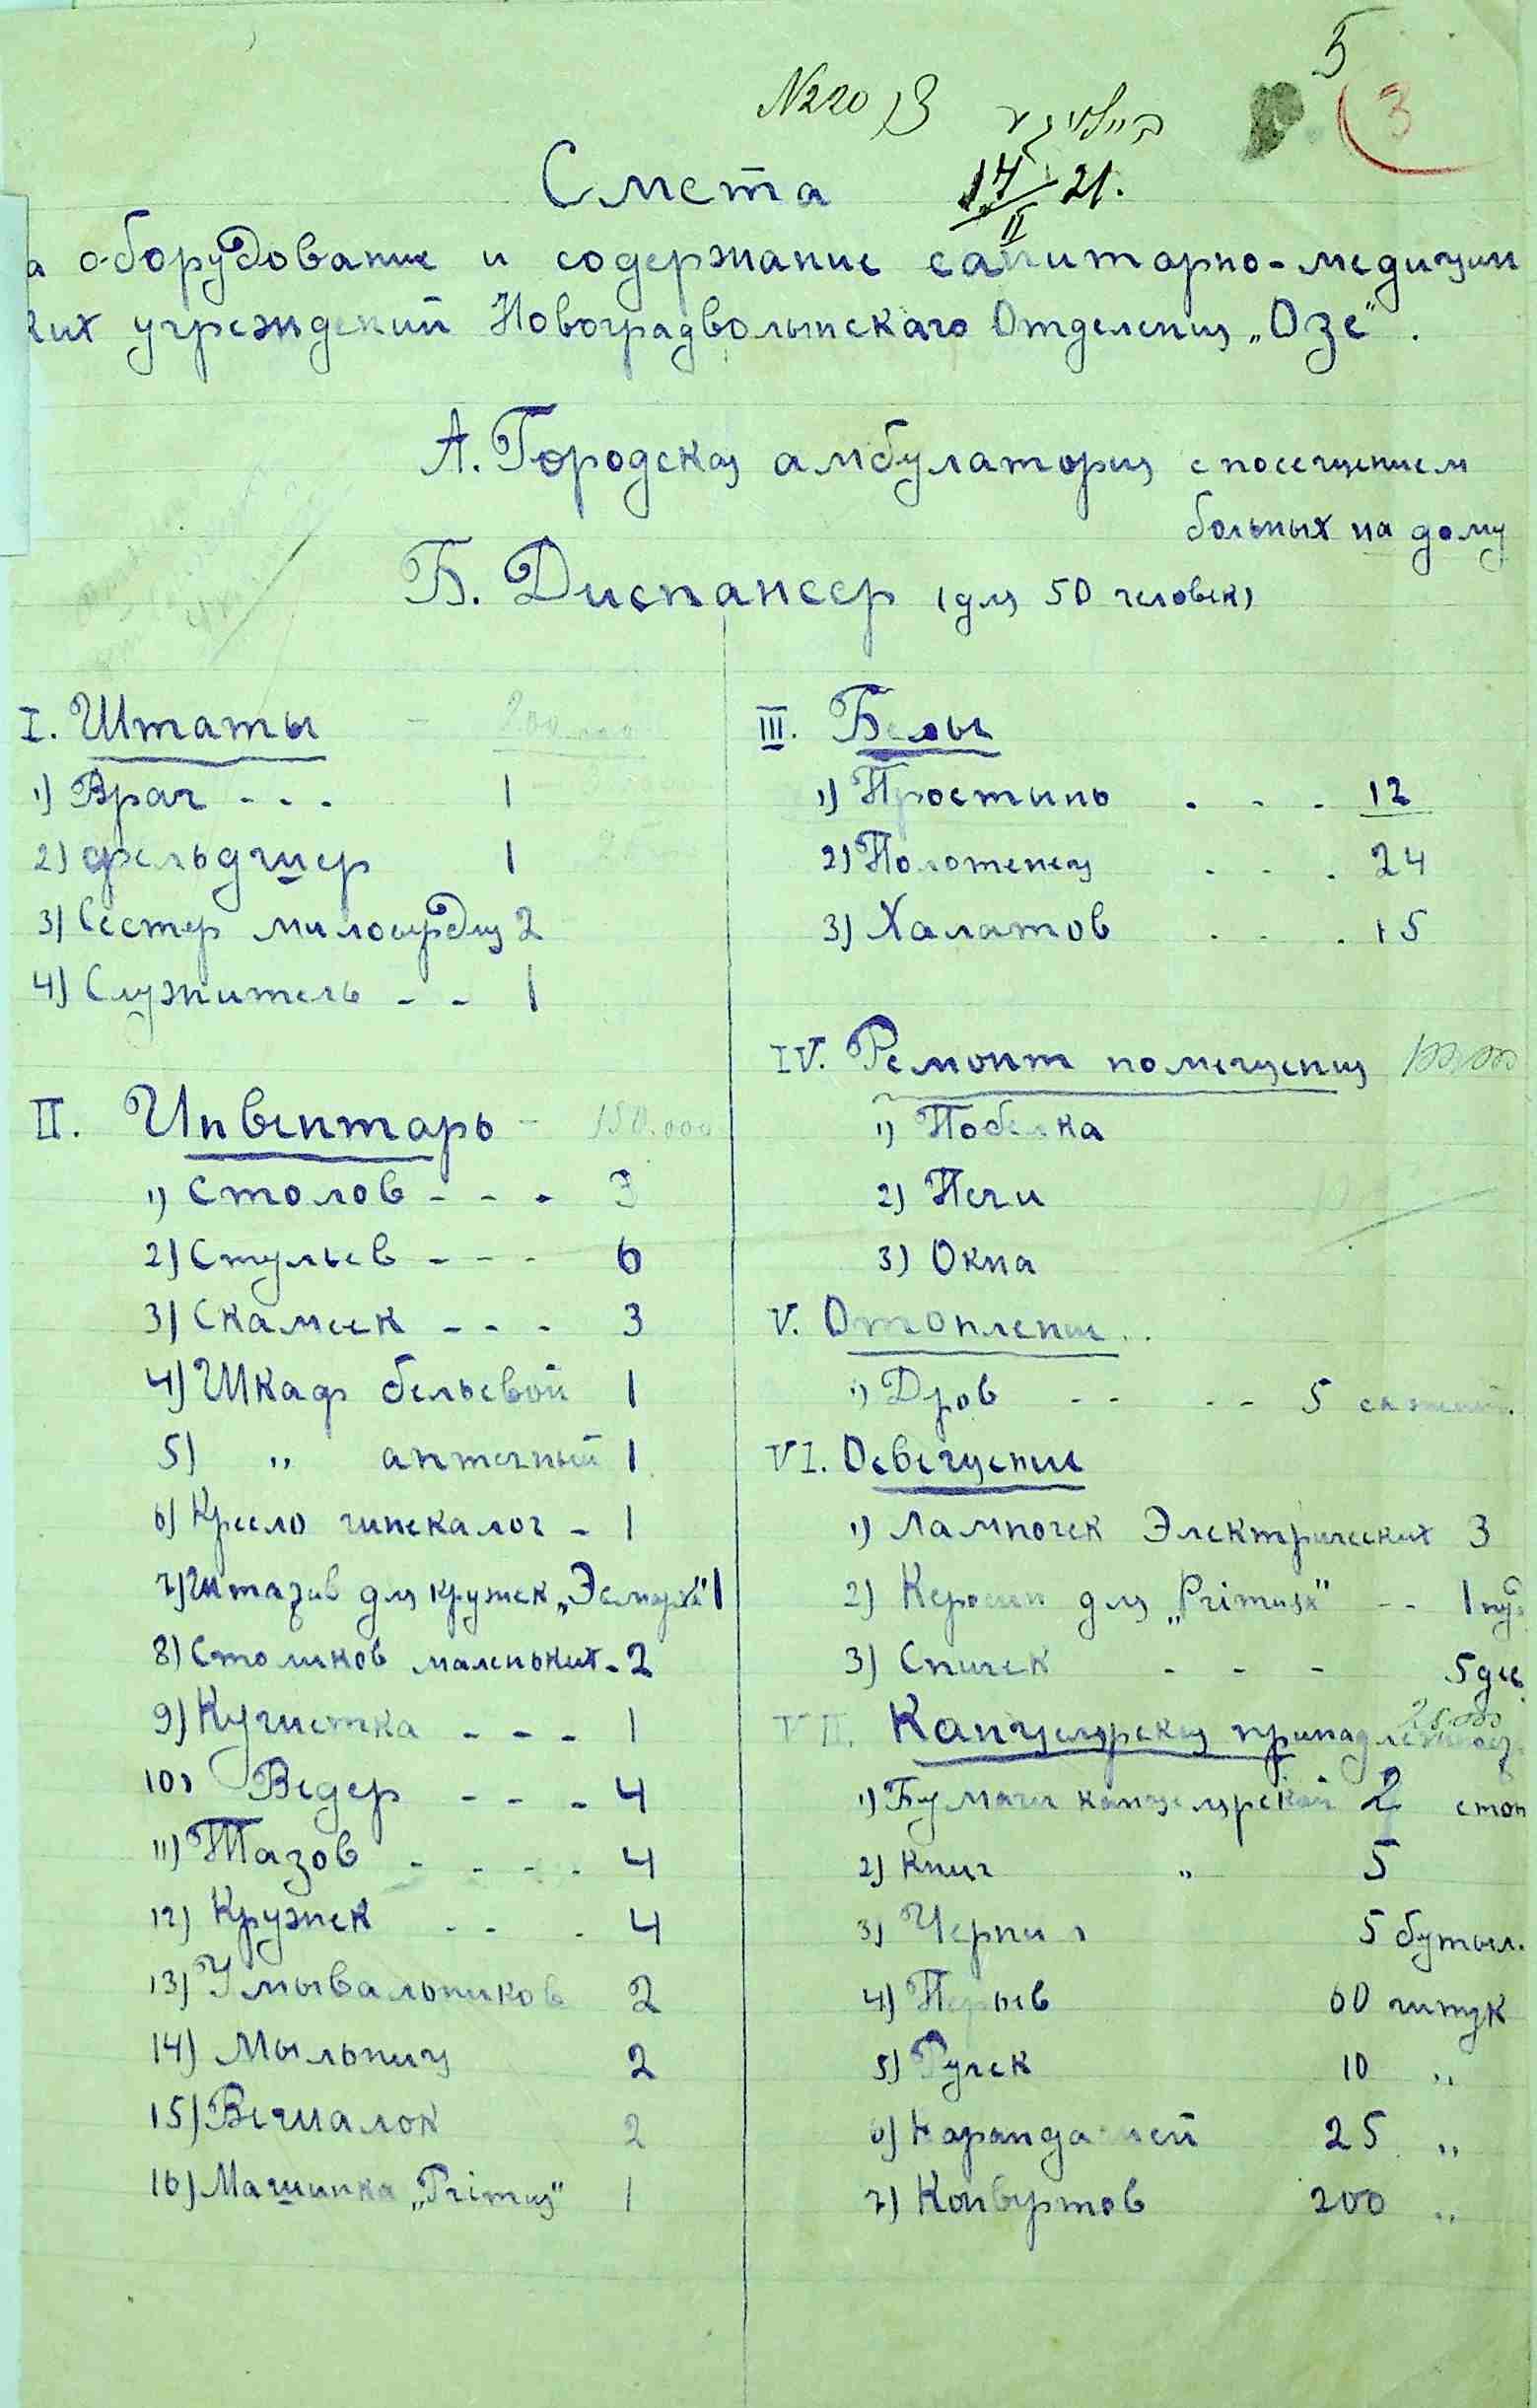 5
3
№220
Смета
14/II 21.
а оборудование и содержание санитарно-медицин
ких учреждений Новоградволынскаго Отделения „Озе".
А. Городская амбулатория с посещением
больных на дому
Б. Диспансер (для 50 человек)
I. Штаты - 200.000
1) Врач - - - 1
2) фельдшер 1
3) Сестер милосердия 2
4) Служитель - - 1
II. Инвентарь - 150.000
1) Столов - - - 3
2) Стульев - - - 6
3) Скамеек - - - 3
4) Шкаф бельевой 1
5) „ аптечный 1
6) Кресло гинекалог - 1
7) Штатив для кружек „Эсмарха" 1
8) Столиков маленьких - 2
9) Кушетка - - - 1
10) Ведер - - - 4
11) Тазов - - - - 4
12) Кружек - - - 4
13) Умывальников 2
14) Мыльниц 2
15) Вешалок 2
16) Машинка „Primus" 1
III. Белье
1) Простынь . - . 12
2) Полотенец . . . 24
3) Халатов . . . 15
IV. Ремонт помещения 100.000
1) Побелка
2) Печи
3) Окна
V. Отопление . .
1) Дров - - - - 5 сажень.
VI. Освещение
1) Лампочек Электрических 3
2) Керосин для „Primusa" - - 1 пуд
3) Спичек - - - 5 дес.
VII. Канцелярския принадлежнос. 25.000
1) Бумаги канцелярской 2 стоп
2) Книг „ 5
3) Чернил 5 бутыл.
4) Перьев 60 штук
5) Ручек 10 „
6) Карандашей 25 „
7) Конвертов 200 „